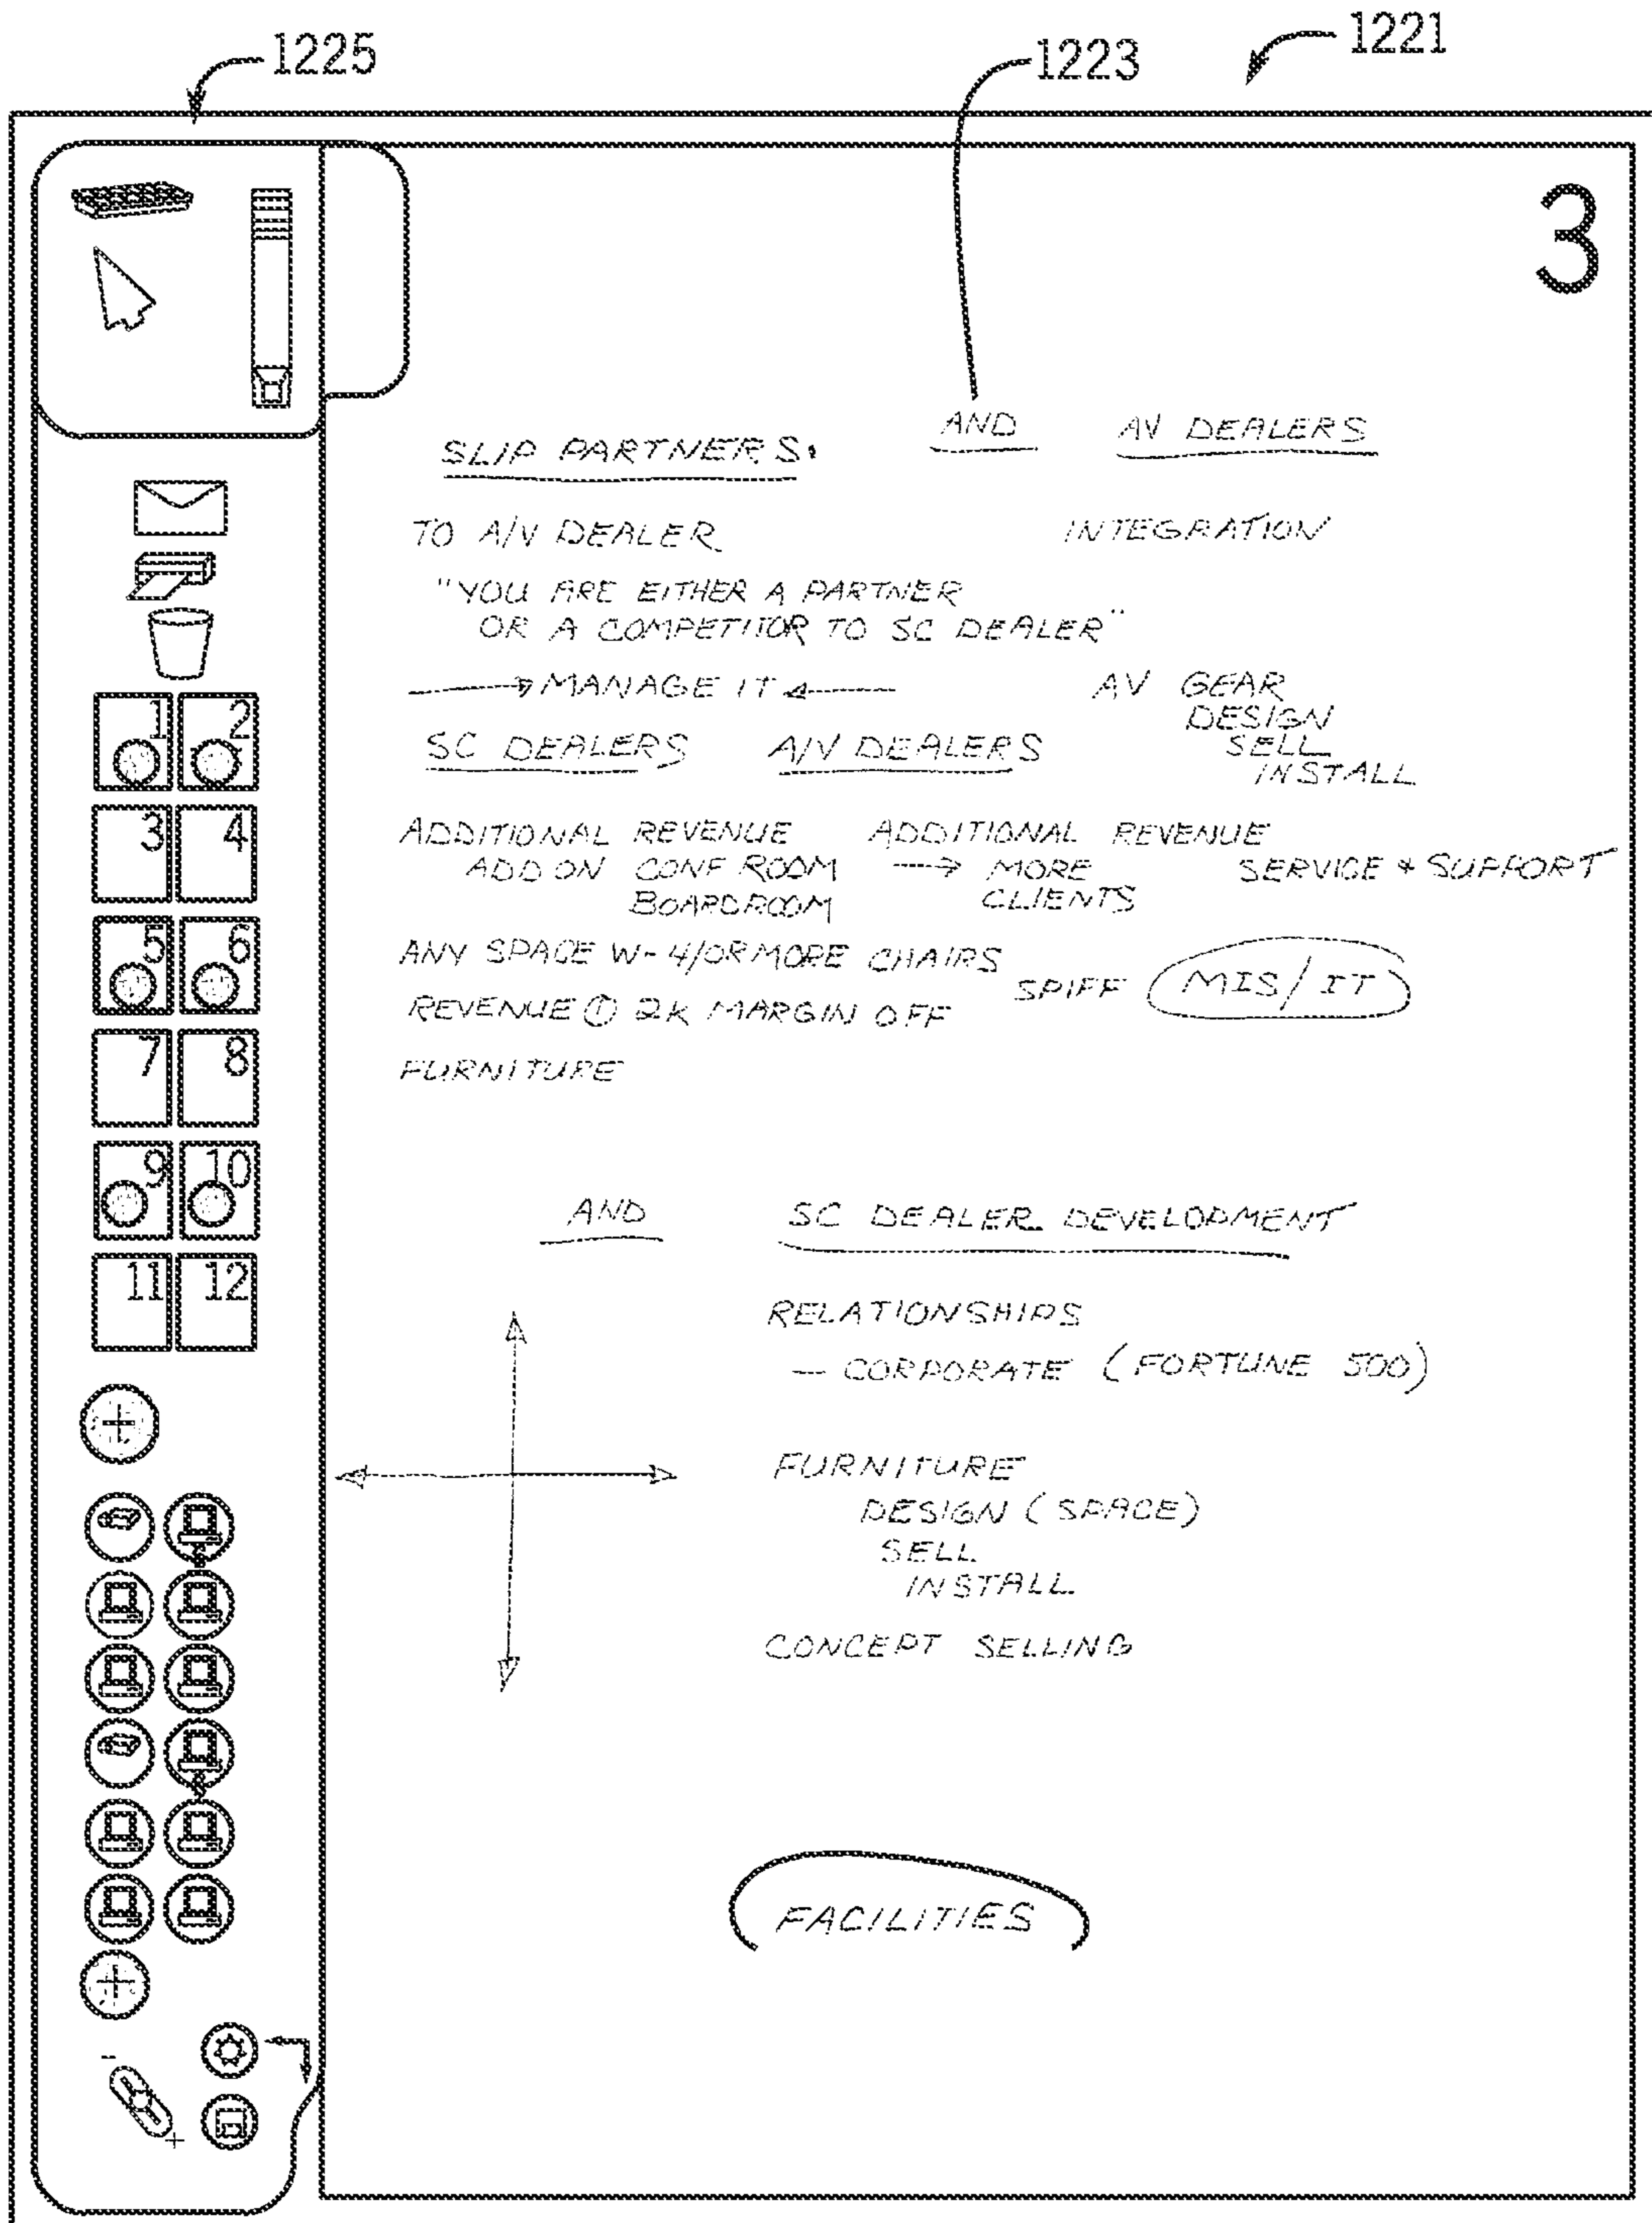 1225
1223
1221
3
SLIP PARTNERS.
AND
AV DEALERS
TO A/V DEALER
INTEGRATION
"YOU ARE EITHER A PARTNER
OR A COMPETITOR TO SC DEALER"
MANAGE IT
AV GEAR
DESIGN
SELL
INSTALL
SC DEALERS
A/V DEALERS
ADDITIONAL REVENUE
ADD ON CONF ROOM
BOARDROOM
ADDITIONAL REVENUE
→ MORE
CLIENTS
SERVICE + SUPPORT
ANY SPACE W- 4/OR MORE CHAIRS
SPIFF
MIS/IT
REVENUE ① 2K MARGIN OFF
FURNITURE
AND
SC DEALER DEVELOPMENT
RELATIONSHIPS
— CORPORATE (FORTUNE 500)
FURNITURE
DESIGN (SPACE)
SELL
INSTALL
CONCEPT SELLING
FACILITIES
1 2
3 4
5 6
7 8
9 10
11 12
+
+
-
+